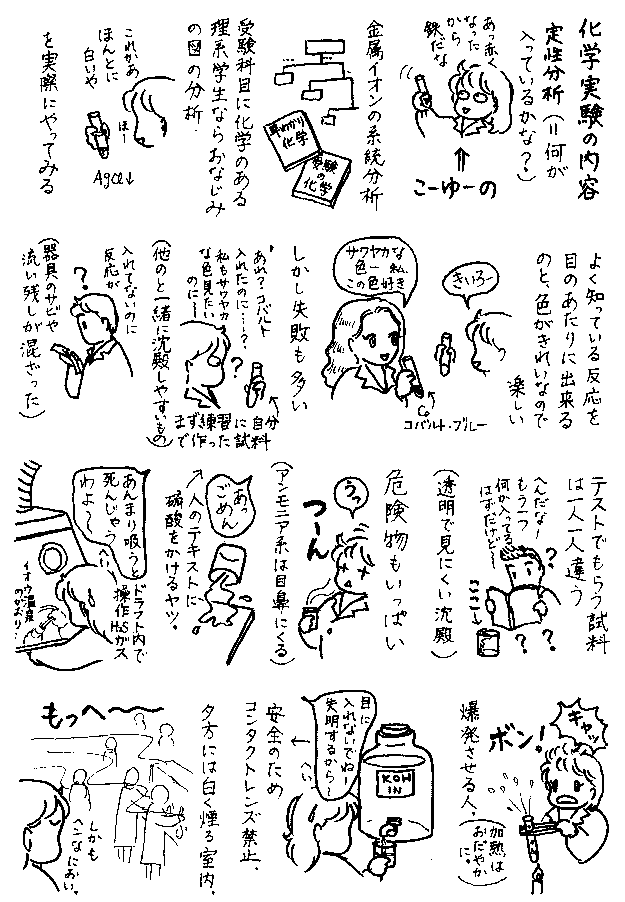 化学実験の内容
定性分析(=何が
入っているかな?)
あっ赤く
なった
から
鉄だな
⇑
こーゆーの
金属イオンの系統分析
早わかり
化学
受験
の
化学
受験科目に化学のある
理系学生ならおなじみ
の図の分析.
これかあ
ほんとに
白いや
ほー
AgCl↓
を実際にやってみる
よく知っている反応を
目のあたりに出来る
のと、色がきれいなので
楽しい
きいろー
サワヤカな
色ー 私、
この色好き
Co
コバルト・ブルー
しかし失敗も多い
あれ?コバルト
入れたのに…?
私もサワヤカ
な色見たい
のにー
?
まず練習に自分
で作った試料
(他のと一緒に沈殿しやすいもの)
入れてないのに
反応が
?
(器具のサビや
流い残しが混ざった)
テストでもらう試料
は一人一人違う
へんだな!
もう一つ
何か入ってる
はずだけど〜
ここに→
? ? ?
(透明で見にくい沈殿)
危険物もいっぱい
うっ
つーん
(アンモニア系は目鼻にくる)
あっ
ごめん
↗人のテキストに
硝酸をかけるヤツ。
あんまり吸うと
死んじゃう
わよ〜
へい
ドラフト内で
操作 H₂Sガス
イオウ温泉
のにおい!
キャッ
ボン!
爆発させる人。
(加熱は
おだやか
に。)
KOH
IN
目に
入れないでね!
失明するから〜
へい
↓
安全のため
コンタクトレンズ禁止。
夕方には白く煙る室内。
もっへ〜〜
しかも
ヘンなにおい。